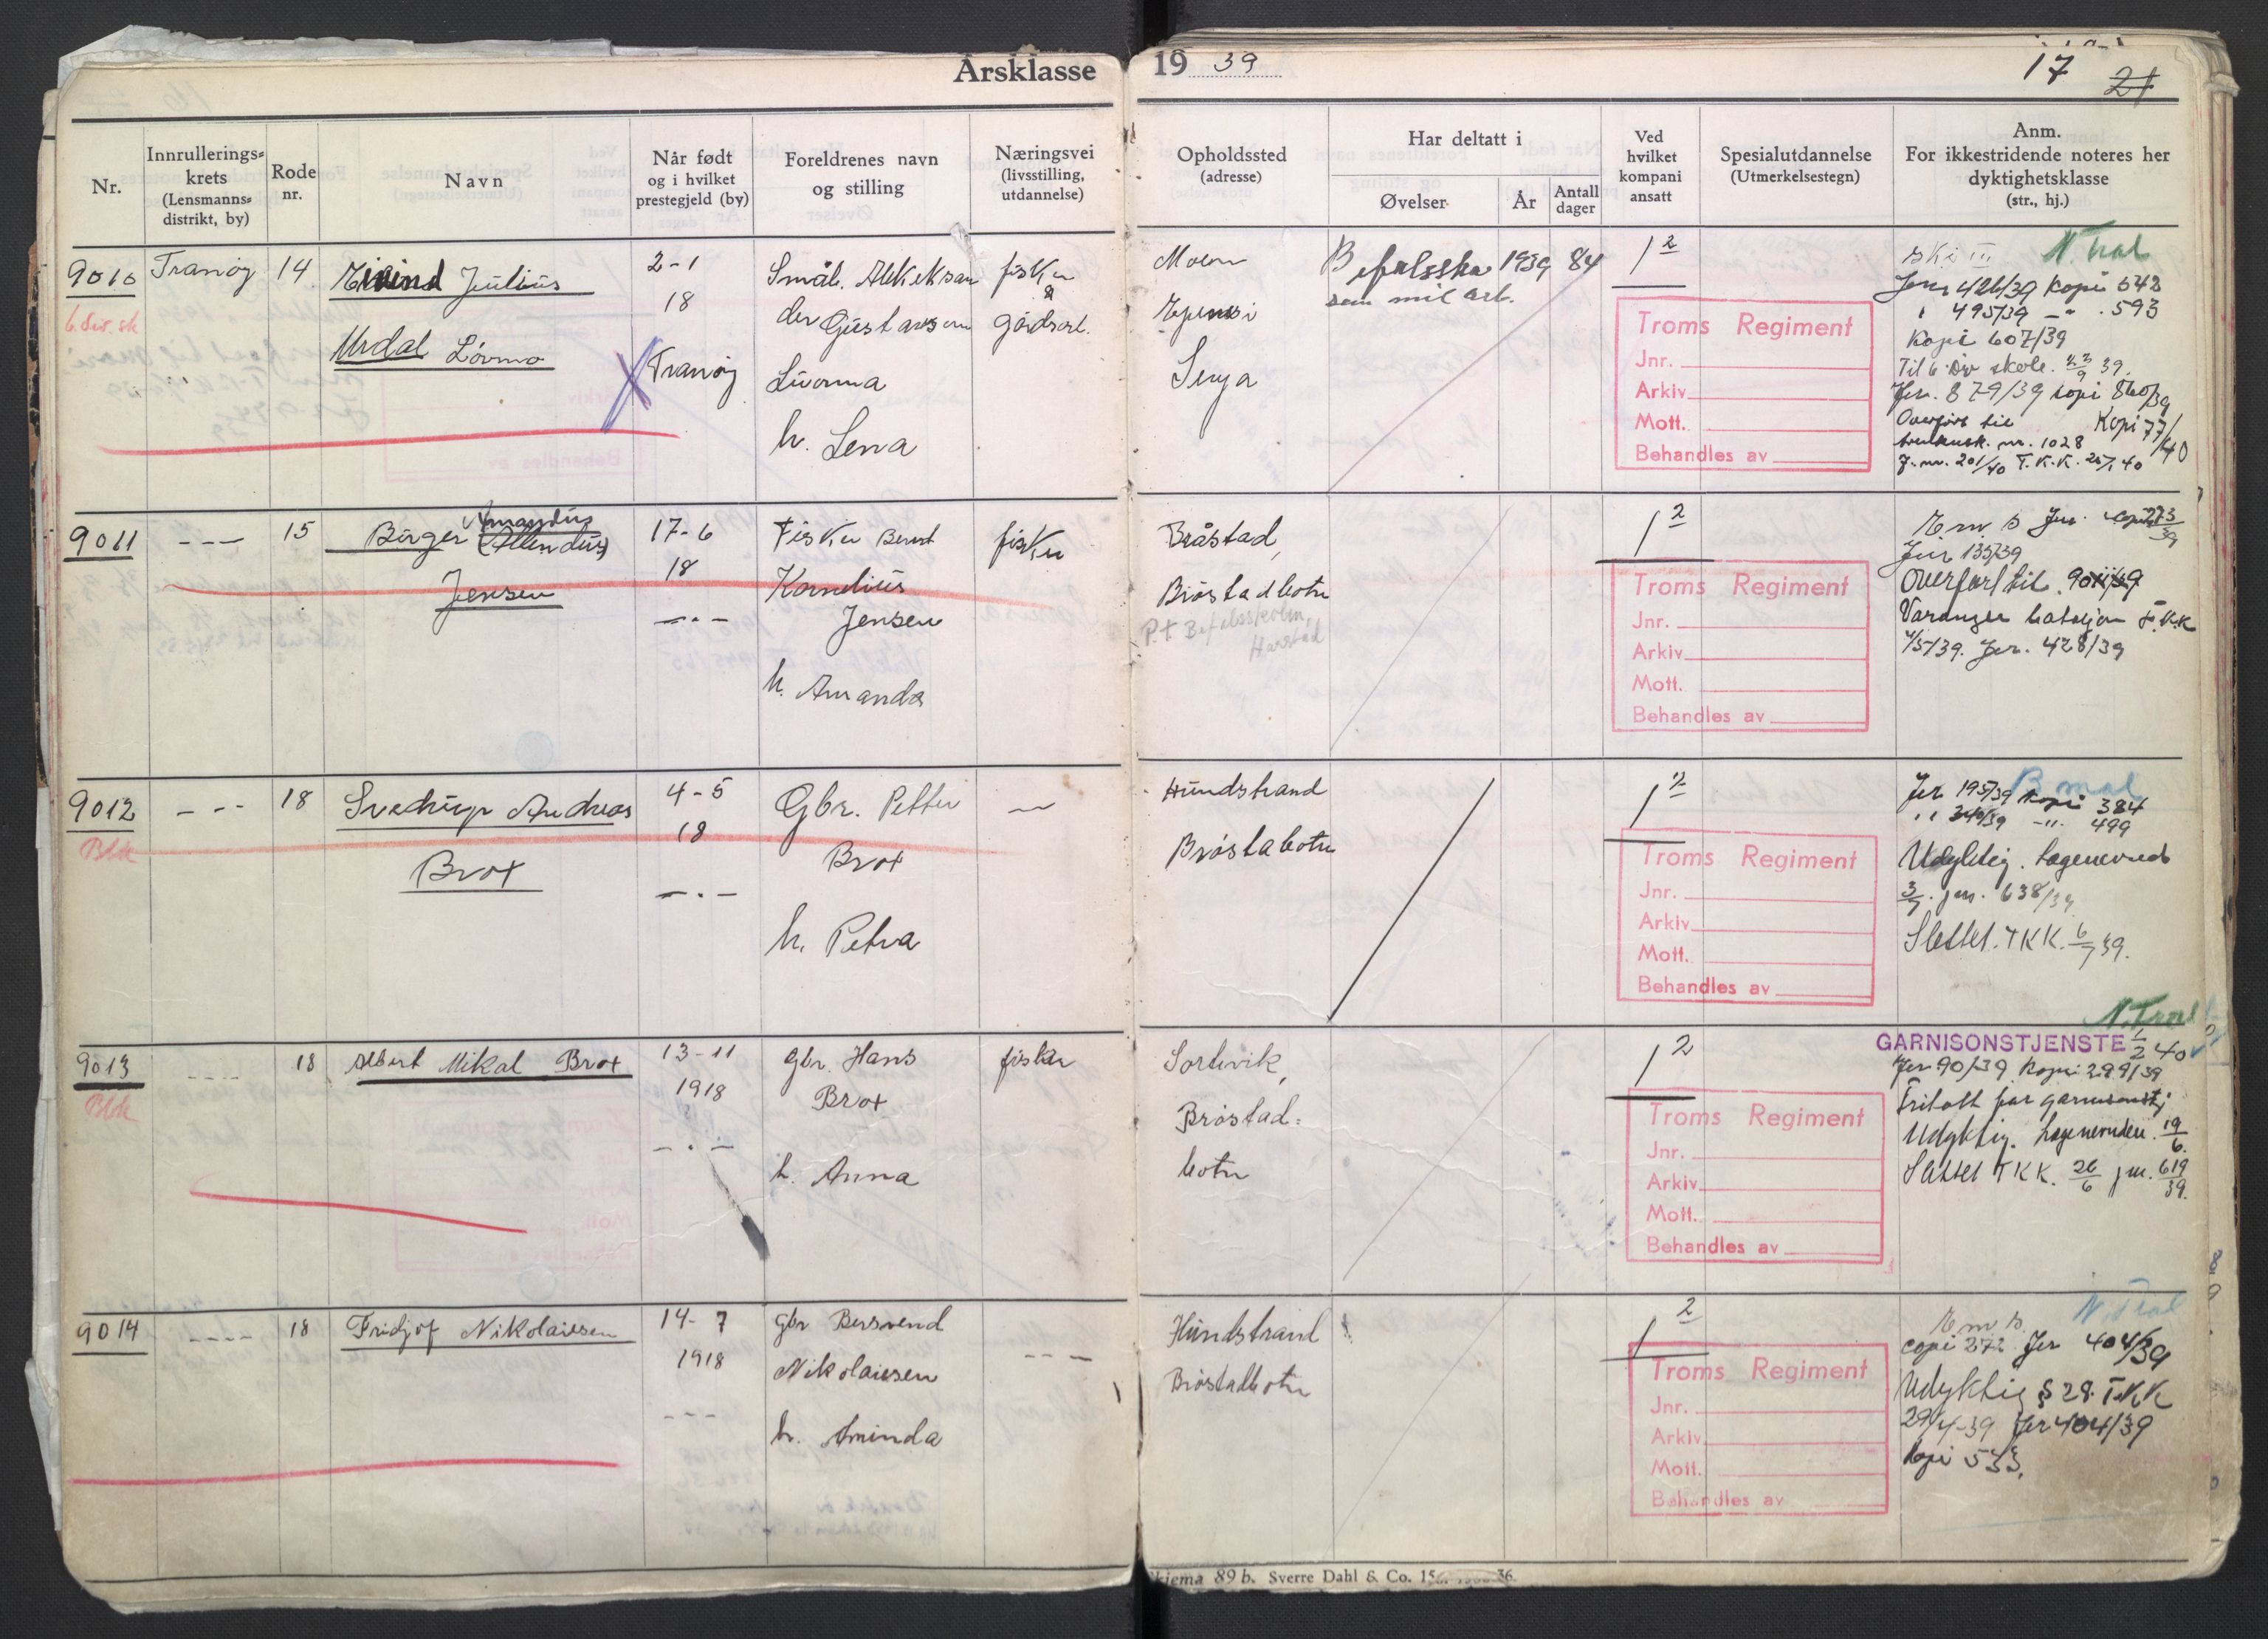 Årsklasse 19 39
17 21
Nr.
Innrullerings=
krets
(Lensmanns=
distrikt, by)
Rode
nr.
Navn
Når født
og i hvilket
prestegjeld (by)
Foreldrenes navn
og stilling
Næringsvei
(livsstilling,
utdannelse)
Opholdssted
(adresse)
Har deltatt i
Øvelser
År
Antall
dager
Ved
hvilket
kompani
ansatt
Spesialutdannelse
(Utmerkelsestegn)
Anm.
For ikkestridende noteres her
dyktighetsklasse
(str., hj.)
9010 Tranøy 14 Eivind Julius
6. div. sk
Urdal Lövmo
2-1
18
Tranøy
Småb.
Gustavsen
h. Lena
fisker
&
gårdsarb.
Moen
Senja
1939 84
som mil. arb.
1 2
Troms Regiment
Jnr.
Arkiv
Mott.
Behandles av
ski III N. Tral
Jnr 426/39 Kopi 542
" 495/39 -"- 593
Kopi 607/39
Til 6 Div skole. 39.
Jnr. 879/39 kopi 860/39
Overført til Kopi 77/40
nr. 1028
J. nr. 201/40 T.K.K. 40
9011 --- 15 Birger Amandus
(Allendus)
Jensen
17-6
18
-.-
Fisker Bernt
Kornelius
Jensen
h. Amanda
fisker
Bråstad,
Bröstadbotn
P.t. Befalsskolen,
Harstad
1 2
Troms Regiment
Jnr.
Arkiv
Mott.
Behandles av
Jnr 135/39
Overført til 9011/39
Varanger bataljon T.K.K
4/5/39. Jnr. 428/39
9012 --- 18 Sverdrup Andreas
Blk
Brox
4-5
18
-.-
Gbr. Petter
Brox
h. Petra
Hundstrand
Bröstabotn
1 2
Troms Regiment
Jnr.
Arkiv
Mott.
Behandles av
B mal
Jnr 195/39 Kopi 384
" 340/39 -"- 499
Udyktig. Lægenevnd
3/7. jnr. 638/39
Slettet. TKK. 6/7 39.
9013 ---- 18 Albert Mikal Brox
Blk
13-11
1918
-.-
gbr. Hans
Brox
h. Anna
fisker
Sortevik,
Bröstad=
botn
1 2
Troms Regiment
Jnr.
Arkiv
Mott.
Behandles av
N. Tral
GARNISONSTJENSTE 1/2 40
Jnr 90/39 Kopi 299/39
Fritatt for garnisonstj
Udyktig. Lægenevnden. 19/6.
Slettet TKK. 26/6 jnr. 619/39.
9014 ---- 18 Fridjof Nikolaisen
14-7
1918
---
gbr Bersvend
Nikolaisen
h. Aminda
---
Hundstrand
Bröstadbotn
1 2
Troms Regiment
Jnr.
Arkiv
Mott.
Behandles av
N. Tral
copi 272 Jnr 404/39
Udyktig § 28. T.K.K
29/4-39 Jnr 404/39
Kopi 533.
89 b. Sverre Dahl & Co.